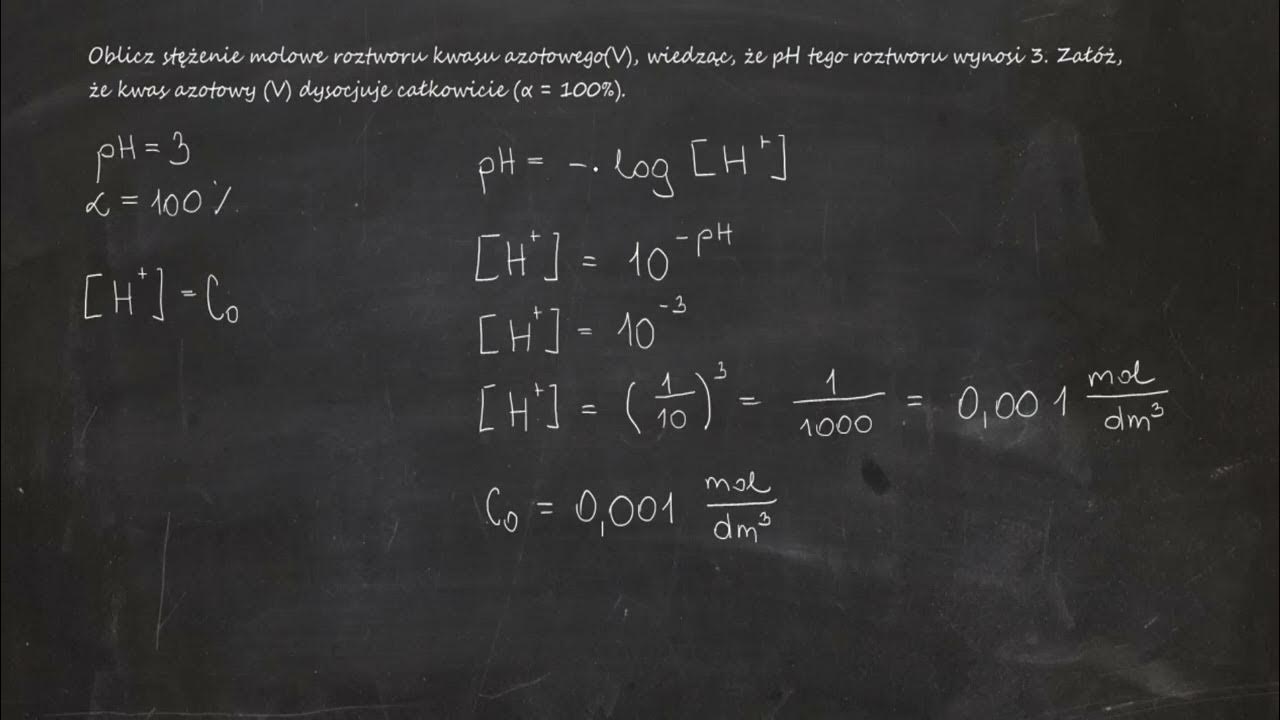 Oblicz stężenie molowe roztworu kwasu azotowego(V), wiedząc, że pH tego roztworu wynosi 3. Załóż,
że kwas azotowy (V) dysocjuje całkowicie (α = 100%).
pH = 3
α = 100%
[H⁺] = C₀
pH = -· log [H⁺]
[H⁺] = 10^-pH
[H⁺] = 10^-3
[H⁺] = (1/10)³ = 1/1000 = 0,001 mol/dm³
C₀ = 0,001 mol/dm³